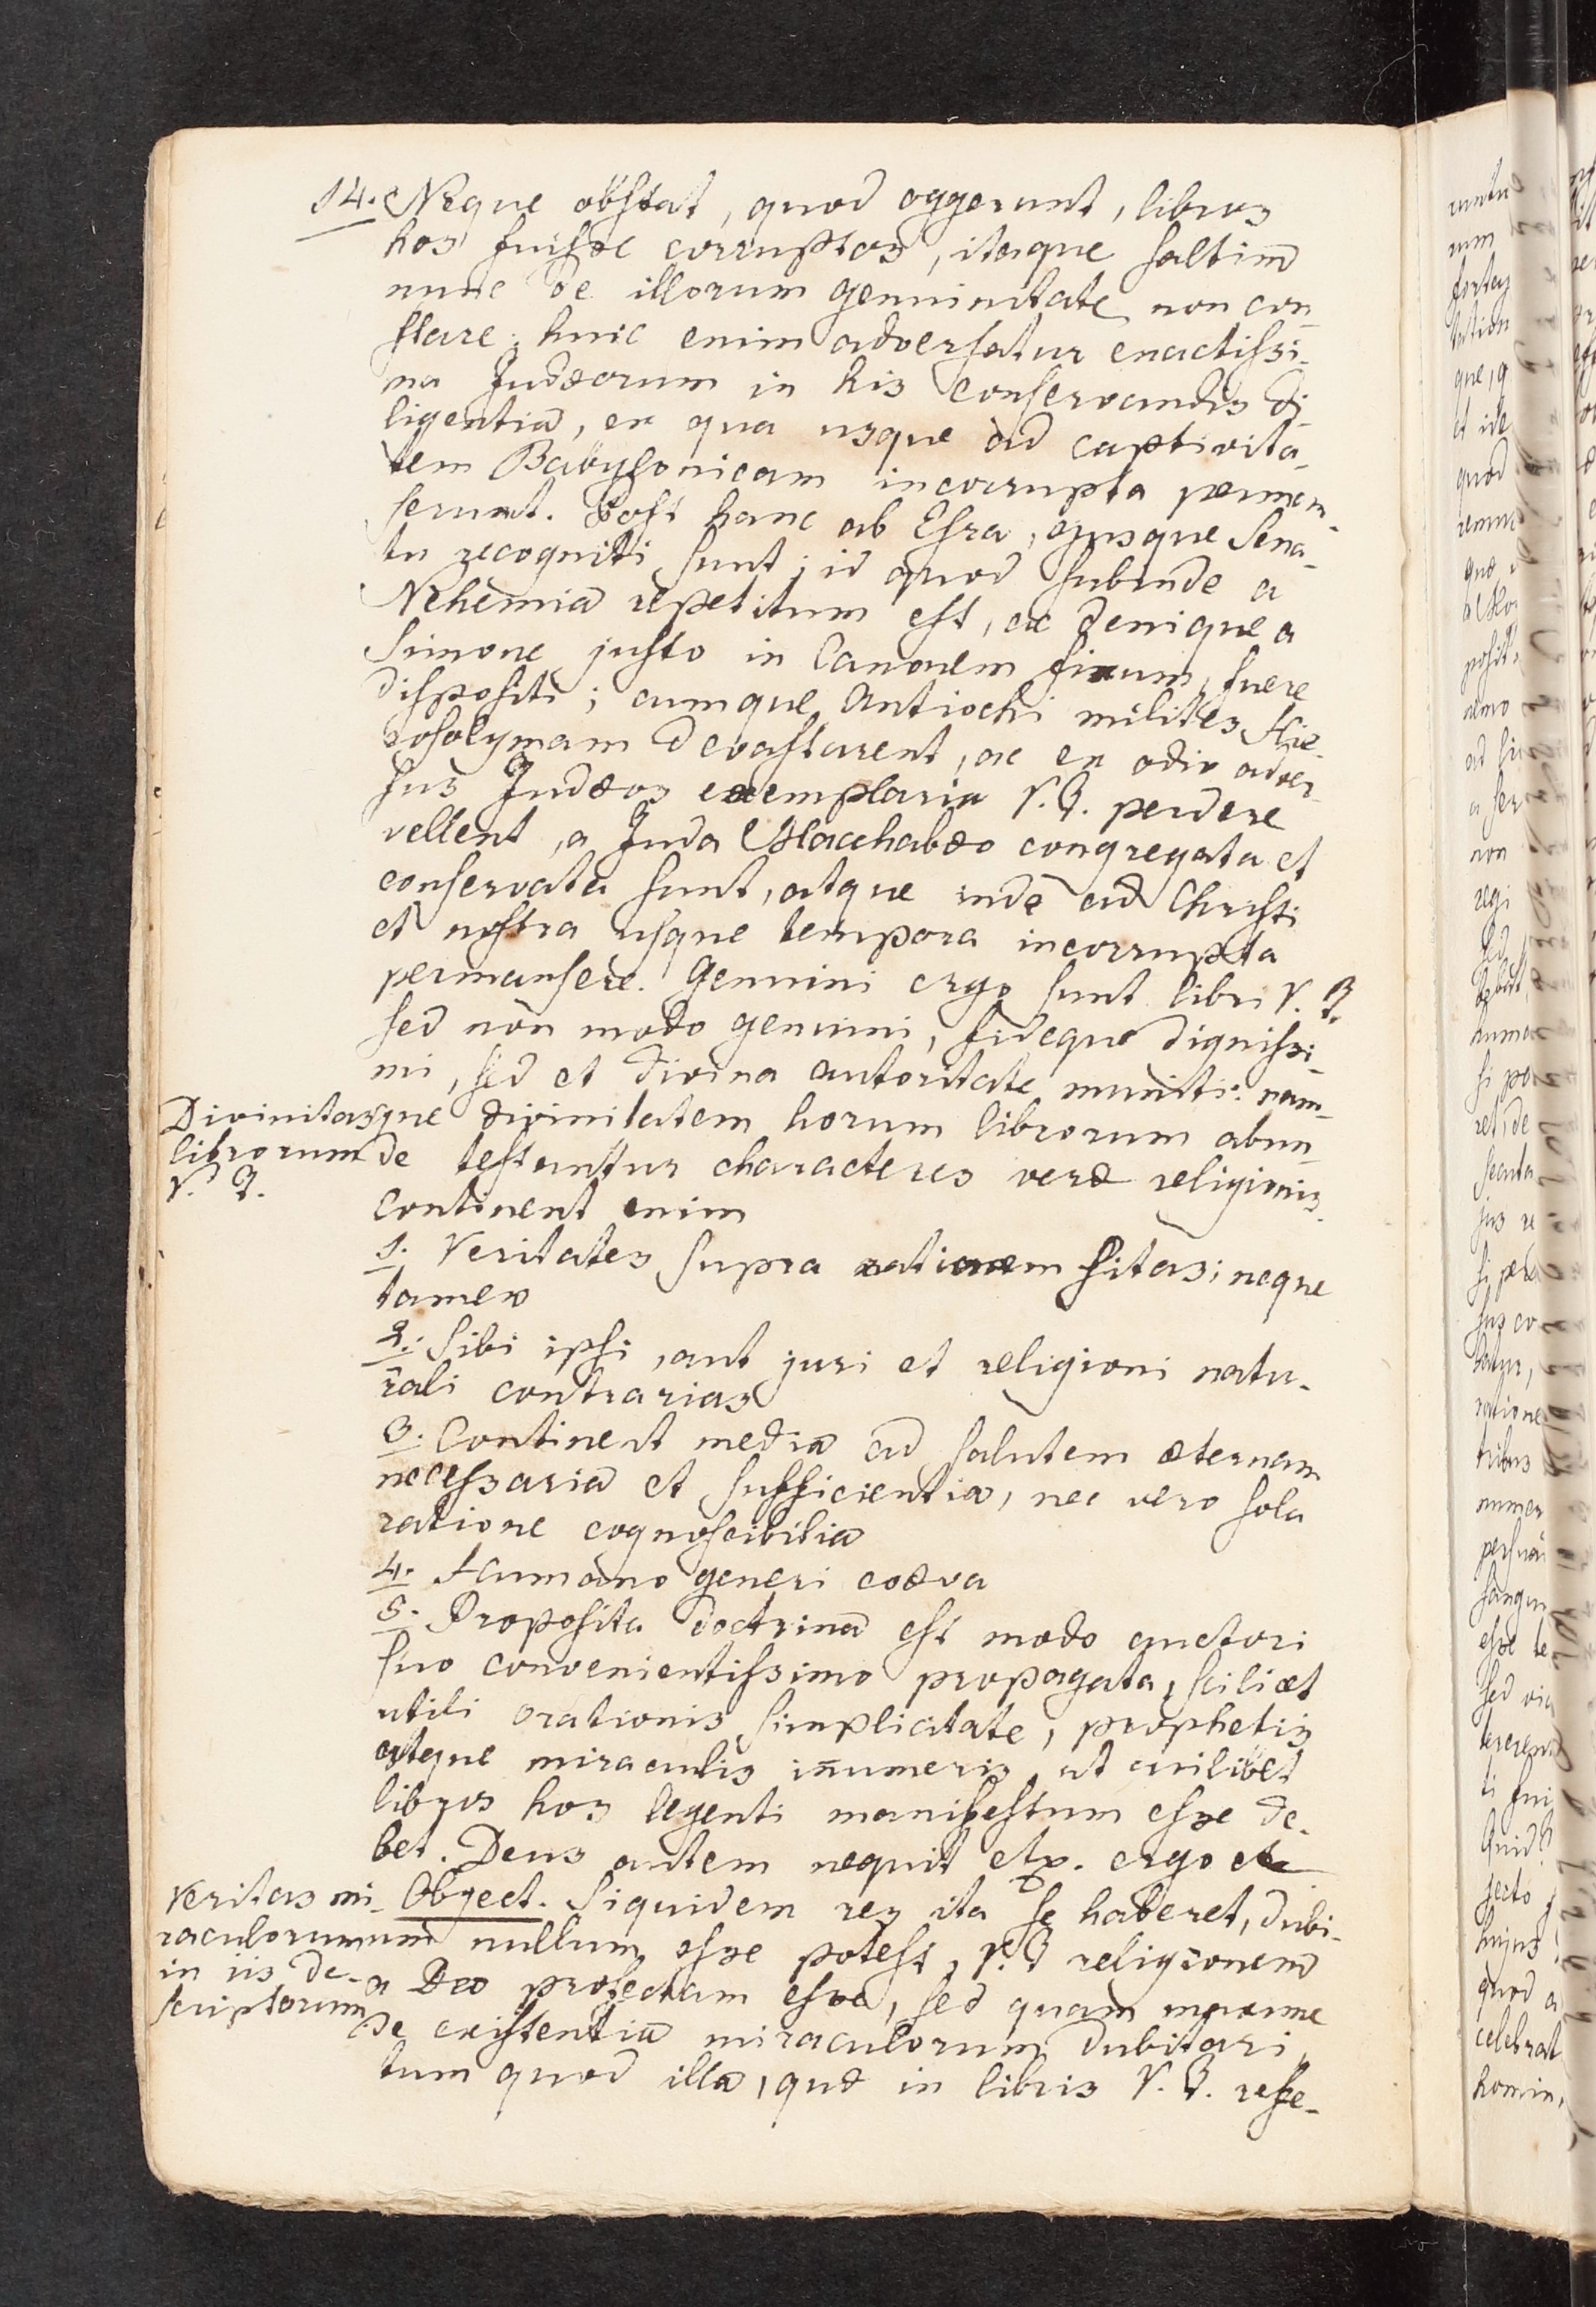 14. Neque obstat, quod oggerunt, libros
hos fuisse corruptos, itaque saltim
nunc de illorum genuinitate non con-
stare; huic enim adversatur exactissi-
ma Judæorum in his conservandis di-
ligentia, ex qua usque ad captivita-
tem Babylonicam incorrupta perman-
serunt. Post hanc ab Esra, ejusque Sena-
tu recogniti sunt; id quod subinde a
Nehemia repetitum est, ac denique a
Simone justo in Canonem fixum fuere
dispositi; cumque Antiochi milites Hie-
rosolymam devastarent, ac ex odio adver-
sus Judæos exemplaria V. T. perdere
vellent, a Juda Macchabæo congregata et
conservata sunt, atque inde ad Christi
et nostra usque tempora incorrupta
permansere. Genuini ergo sunt libri V. T.
sed non modo genuini, fideque dignissi-
mi, sed et divina autoritate muniti: nam-
que divinitatem horum librorum abun-
de testantur characteres veræ religionis.
Divinitas
librorum
V. T.
continent enim
1. Veritates supra rationem sitas; neque
tamen
2. Sibi ipsi, aut juri et religioni natu-
rali contrarias
3. Continent media ad salutem æternam
necessaria et sufficientia, nec vero sola
ratione cognoscibilia
4. Humano generi coæva
5. Proposita doctrina est modo auctori
suo convenientissimo propagata, scilicet
utili orationis simplicitate, prophetis
atque miraculis inumeris, ut cuilibet
libros hos legenti manifestum esse de-
bet. Deus autem nequit etc. ergo etc
Veritas mi-
raculorum
in iis de-
scriptorum
Object. Siquidem res ita se haberet, dubi-
um nullum esse potest, V. T. religionem
a Deo profectam esse, sed quam maxime
de existentia miraculorum dubitari,
tum quod illa, quæ in libris V. T. refe-